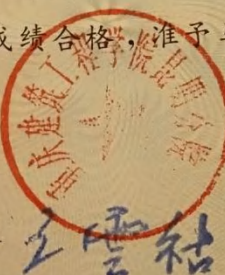 成绩合格，准予
重庆建筑工程学院昆明分院
王雲